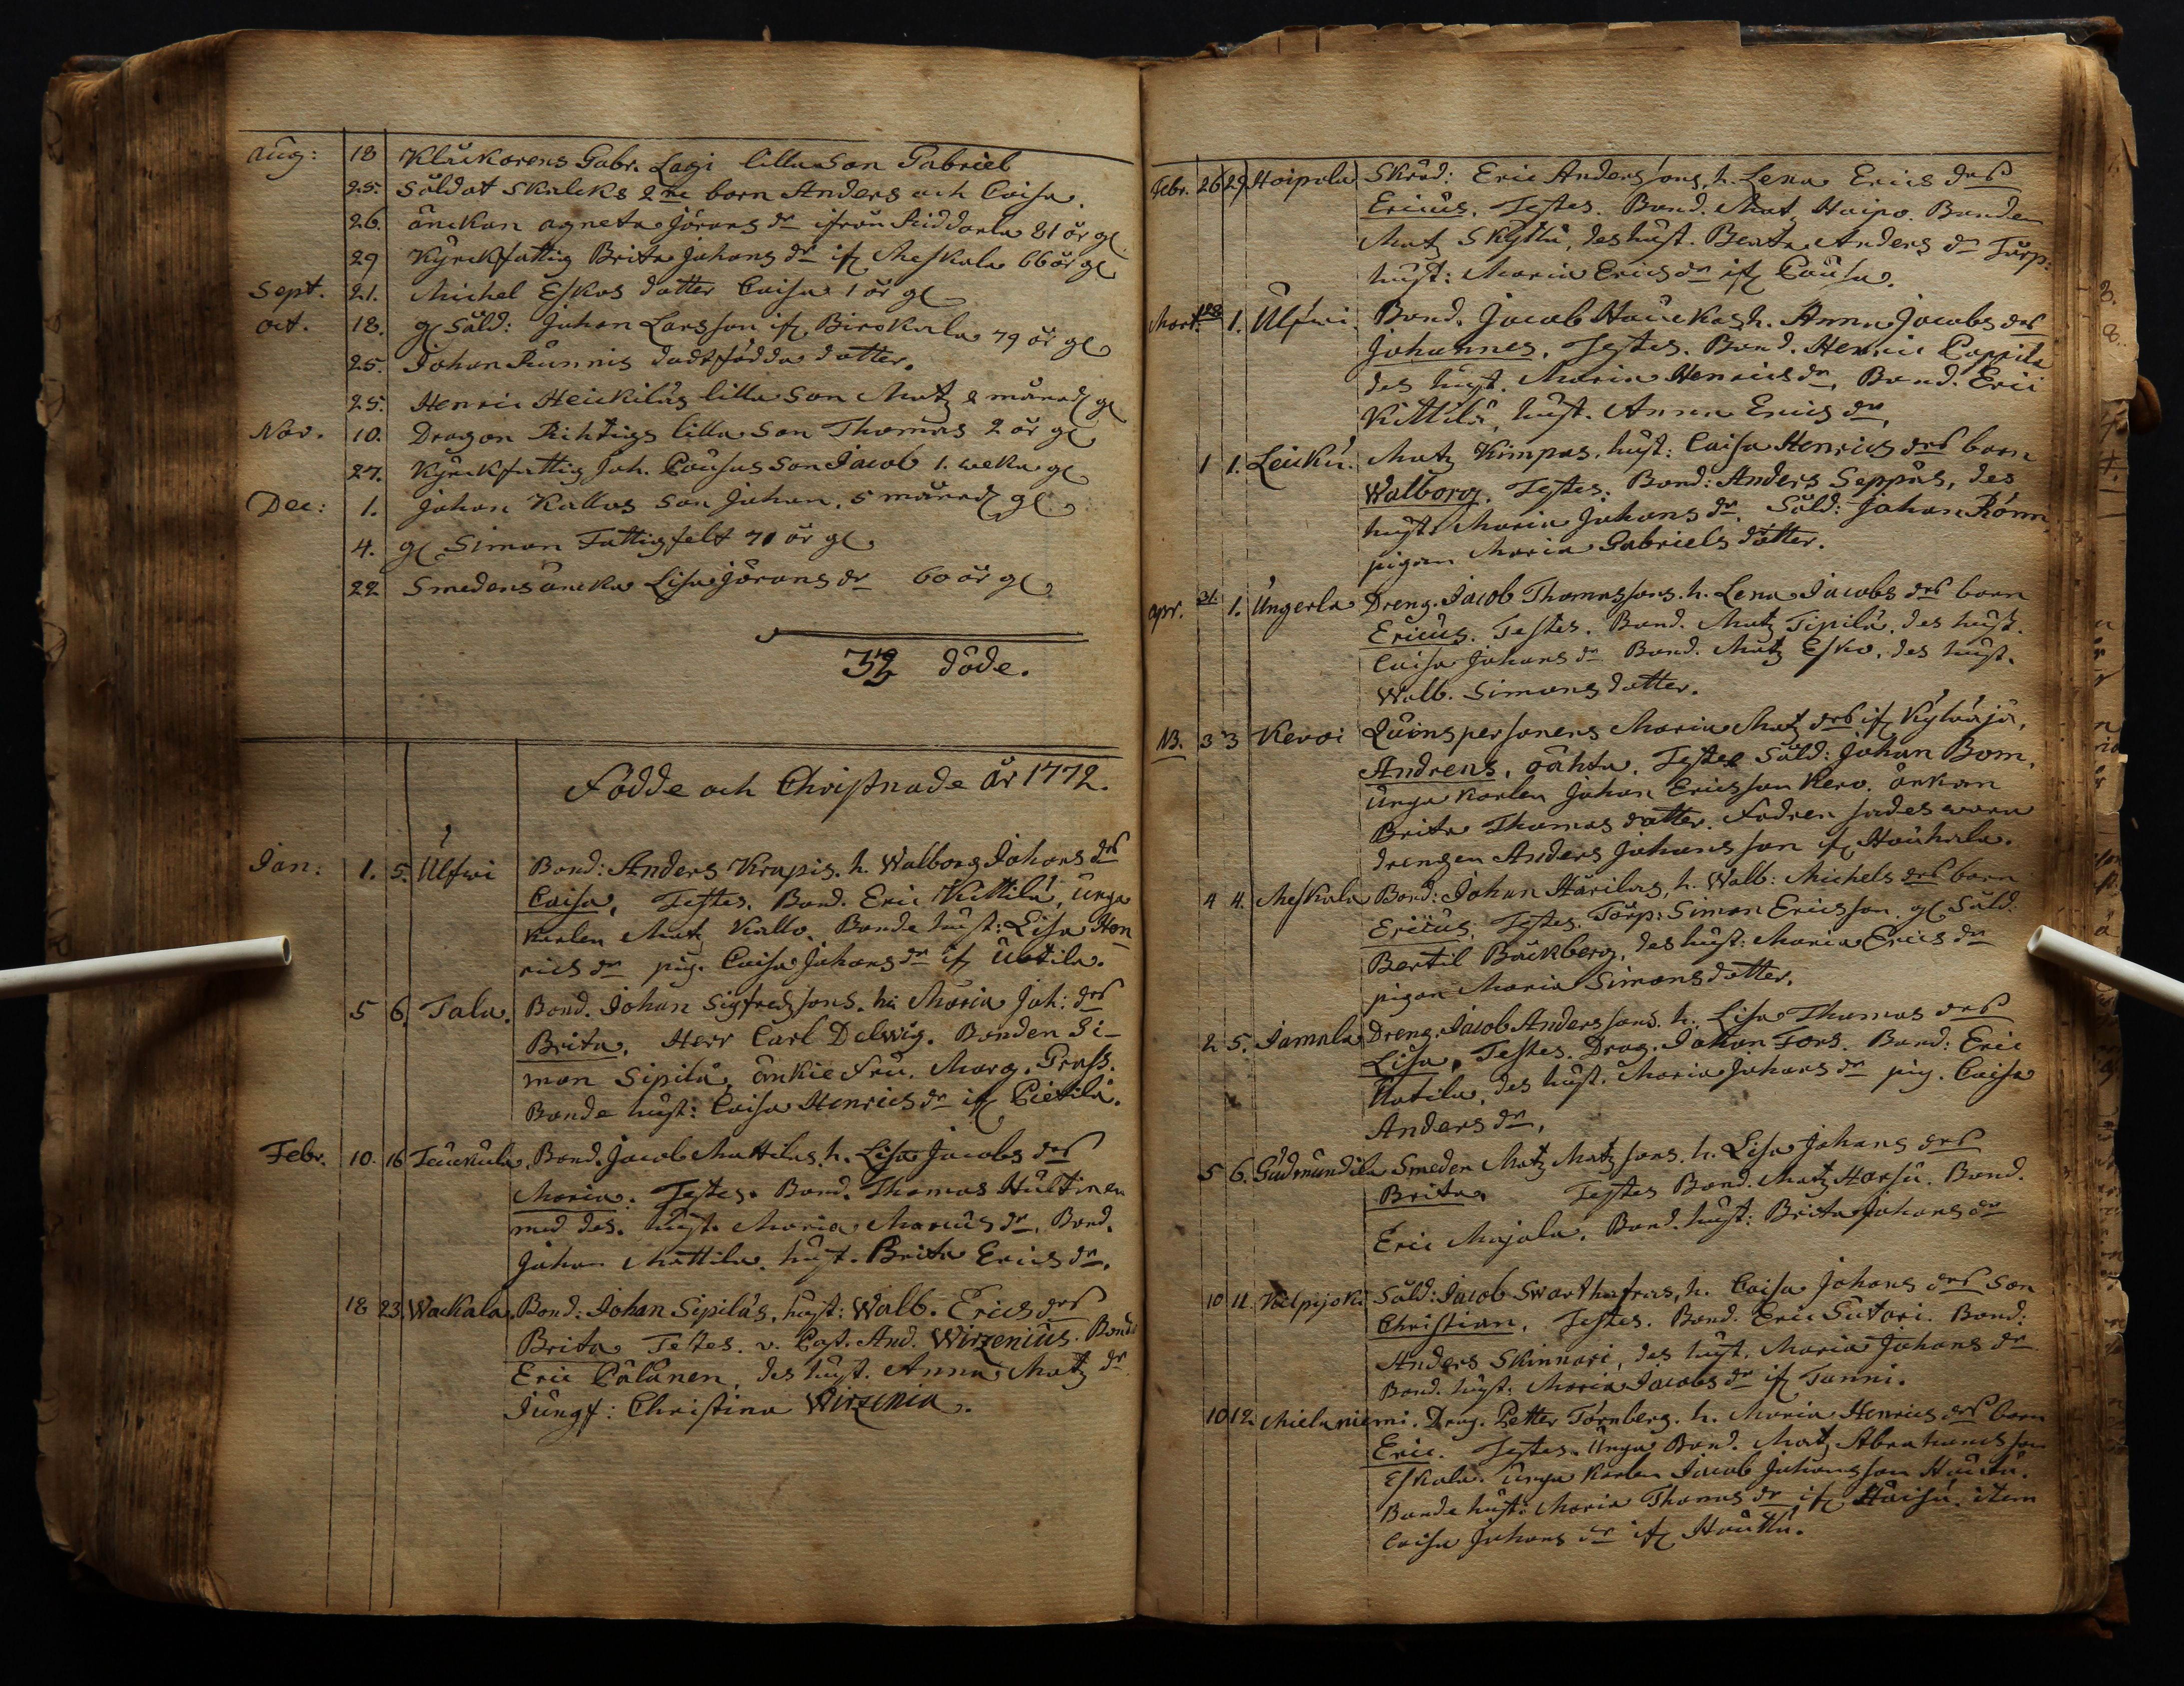 Aug: 18 Klåckarens Gabr. Lagi lilla Son Gabriel
25. Soldat Skalcks 2ne barn Anders och Caisa.
26. änckan Agneta Jörans dr ifrån Riddarla 81 år gl
29 Kyrckfattig Brita Johans dr if Meskala 66 år gl
Sept. 21. Michel Eskos dotter Caisa 1 år gl
Oct. 18. gl Såld: Johan Larsson if Birckala 79 år gl
25. Johan Runnis dödfödda dotter.
25. Henric Heickiläs lilla Son Matz 2 månad gl
Nov. 10. Dragon Richtigs lilla Son Thomas 2 år gl
27. Kyrckfattig Joh. Cousas Son Jacob 1. weka gl
Dec: 1. Johan Kallos Son Johan. 5 månad gl
4. gl Simon Fattigfelt 70 år gl
22 Smedens äncka Lisa Jörans dr 60 år gl
döde.
Födde och Christnade år 1772.
Jan: 1. 5. Ulfwi Bond: Anders Krapis. h. Walborg Johans drs
Caisa, Testes. Bond. Eric Kittilä, unga
karlen Matz Kallo. Bonde hust: Lisa Hen
rics dr pig. Caisa Johans dr if Uotila.
5 6. Tala. Bond. Johan Sigfredssons. hu Maria Joh: drs
Brita, Herr Carl Delwig. Bonden Si-
mon Sipilä, änkie Fru. Marg. Grass.
Bonde hust: Caisa Henrics dr if Pietilä.
Febr. 10. 16 Teuckula. Bond. Jacob Mattilas. h. Lisa Jacobs drs
Maria. Testes. Bond. Thomas Hultinen
med des. hust. Maria Marcus dr. Bond.
Johan Mattila. hust. Brita Erics dr.
18 23. Wackala. Bond: Johan Sipiläs, hust: Walb. Erics drs
Brita Testes. v. Past. And. Wirzenius. Bond
Eric Pälänen, des hust. Anna Matz dr
Jungf: Christina Wirzenia.
Febr. 26 29 Hoipola Skräd: Eric Anderssons, h. Lena Erics drs
Ericus. Testes. Bond. Mat. Hoipo. Bonden
Matz Skyttä, des hust. Beata Anders dr Torp:
hust: Maria Erics dr if Cousa.
Mart. 1. Ulfwi. Bond. Jacob Hauckas h. Anna Jacobs drs
Johannes. Testes. Bond. Henric Cappila
des hust. Maria Henrics dr. Bond. Eric
Kittilä, hust. Anna Erics dr.
1 1. Leickü. Matz Kimpas. hust: Caisa Henrics drs barn
Walborg. Testes. Bond: Anders Seppäs, des
hust: Maria Johans dr. Såld: Johan Rönn
pigan Maria Gabriels dotter.
Apr. 31. 1. Ungerla Dreng. Jacob Thomassons. h. Lena Jacobs drs barn
Ericus. Testes. Bond. Matz Sipilä. des hust.
Caisa Johans dr Bond. Matz Esko. des hust.
Walb. Simons dotter.
NB. 3 3 Kevoi Qvinspersonens Maria Matz drs if Kylväjä.
Andreas, oächta. Testes Såld: Johan Bom.
unga karlen Johan Ericsson Kero. änkan
Brita Thomas dotter. Fadren sades wara
drengen Anders Johansson if Houhala.
4 4. Meskala Bond: Johan Härilas, h. Walb: Michels drs barn
Ericus. Testes. Torp: Simon Ericsson. gl Såld.
Bertil Bäckberg, des hust: Maria Erics dr
pigan Maria Simons dotter.
2 5. Jamala Dreng. Jacob Anderssons. h. Lisa Thomas drs
Lisa. Testes. Drag. Johan Fors. Bond: Eric
Uotila. des hust. Maria Johans dr pig. Caisa
Anders dr.
5 6. Gudmundila Smeden Matz Matzsons. h. Lisa Johans drs
Brita. Testes Bond. Matz Harju. Bond.
Eric Majala. Bond. hust: Brita Johans dr
10 11 Kulpijoki Såld: Jacob Swarthafras, h. Caisa Johans drs Son
Christian. Testes. Bond. Eric Sutari. Bond:
Anders Skinnari, des hust. Maria Johans dr
Bond. hust: Maria Jacobs dr if Tanni.
10 12. Mielaniemi. Drag. Petter Törnberg. h. Maria Henrics drs barn
Eric. Testes. Unga Bond. Matz Abrahamsson
Eskala. unga karlen Jacob Johansson
Bonde hust: Maria Thomas dr if item
Caisa Johans dr if